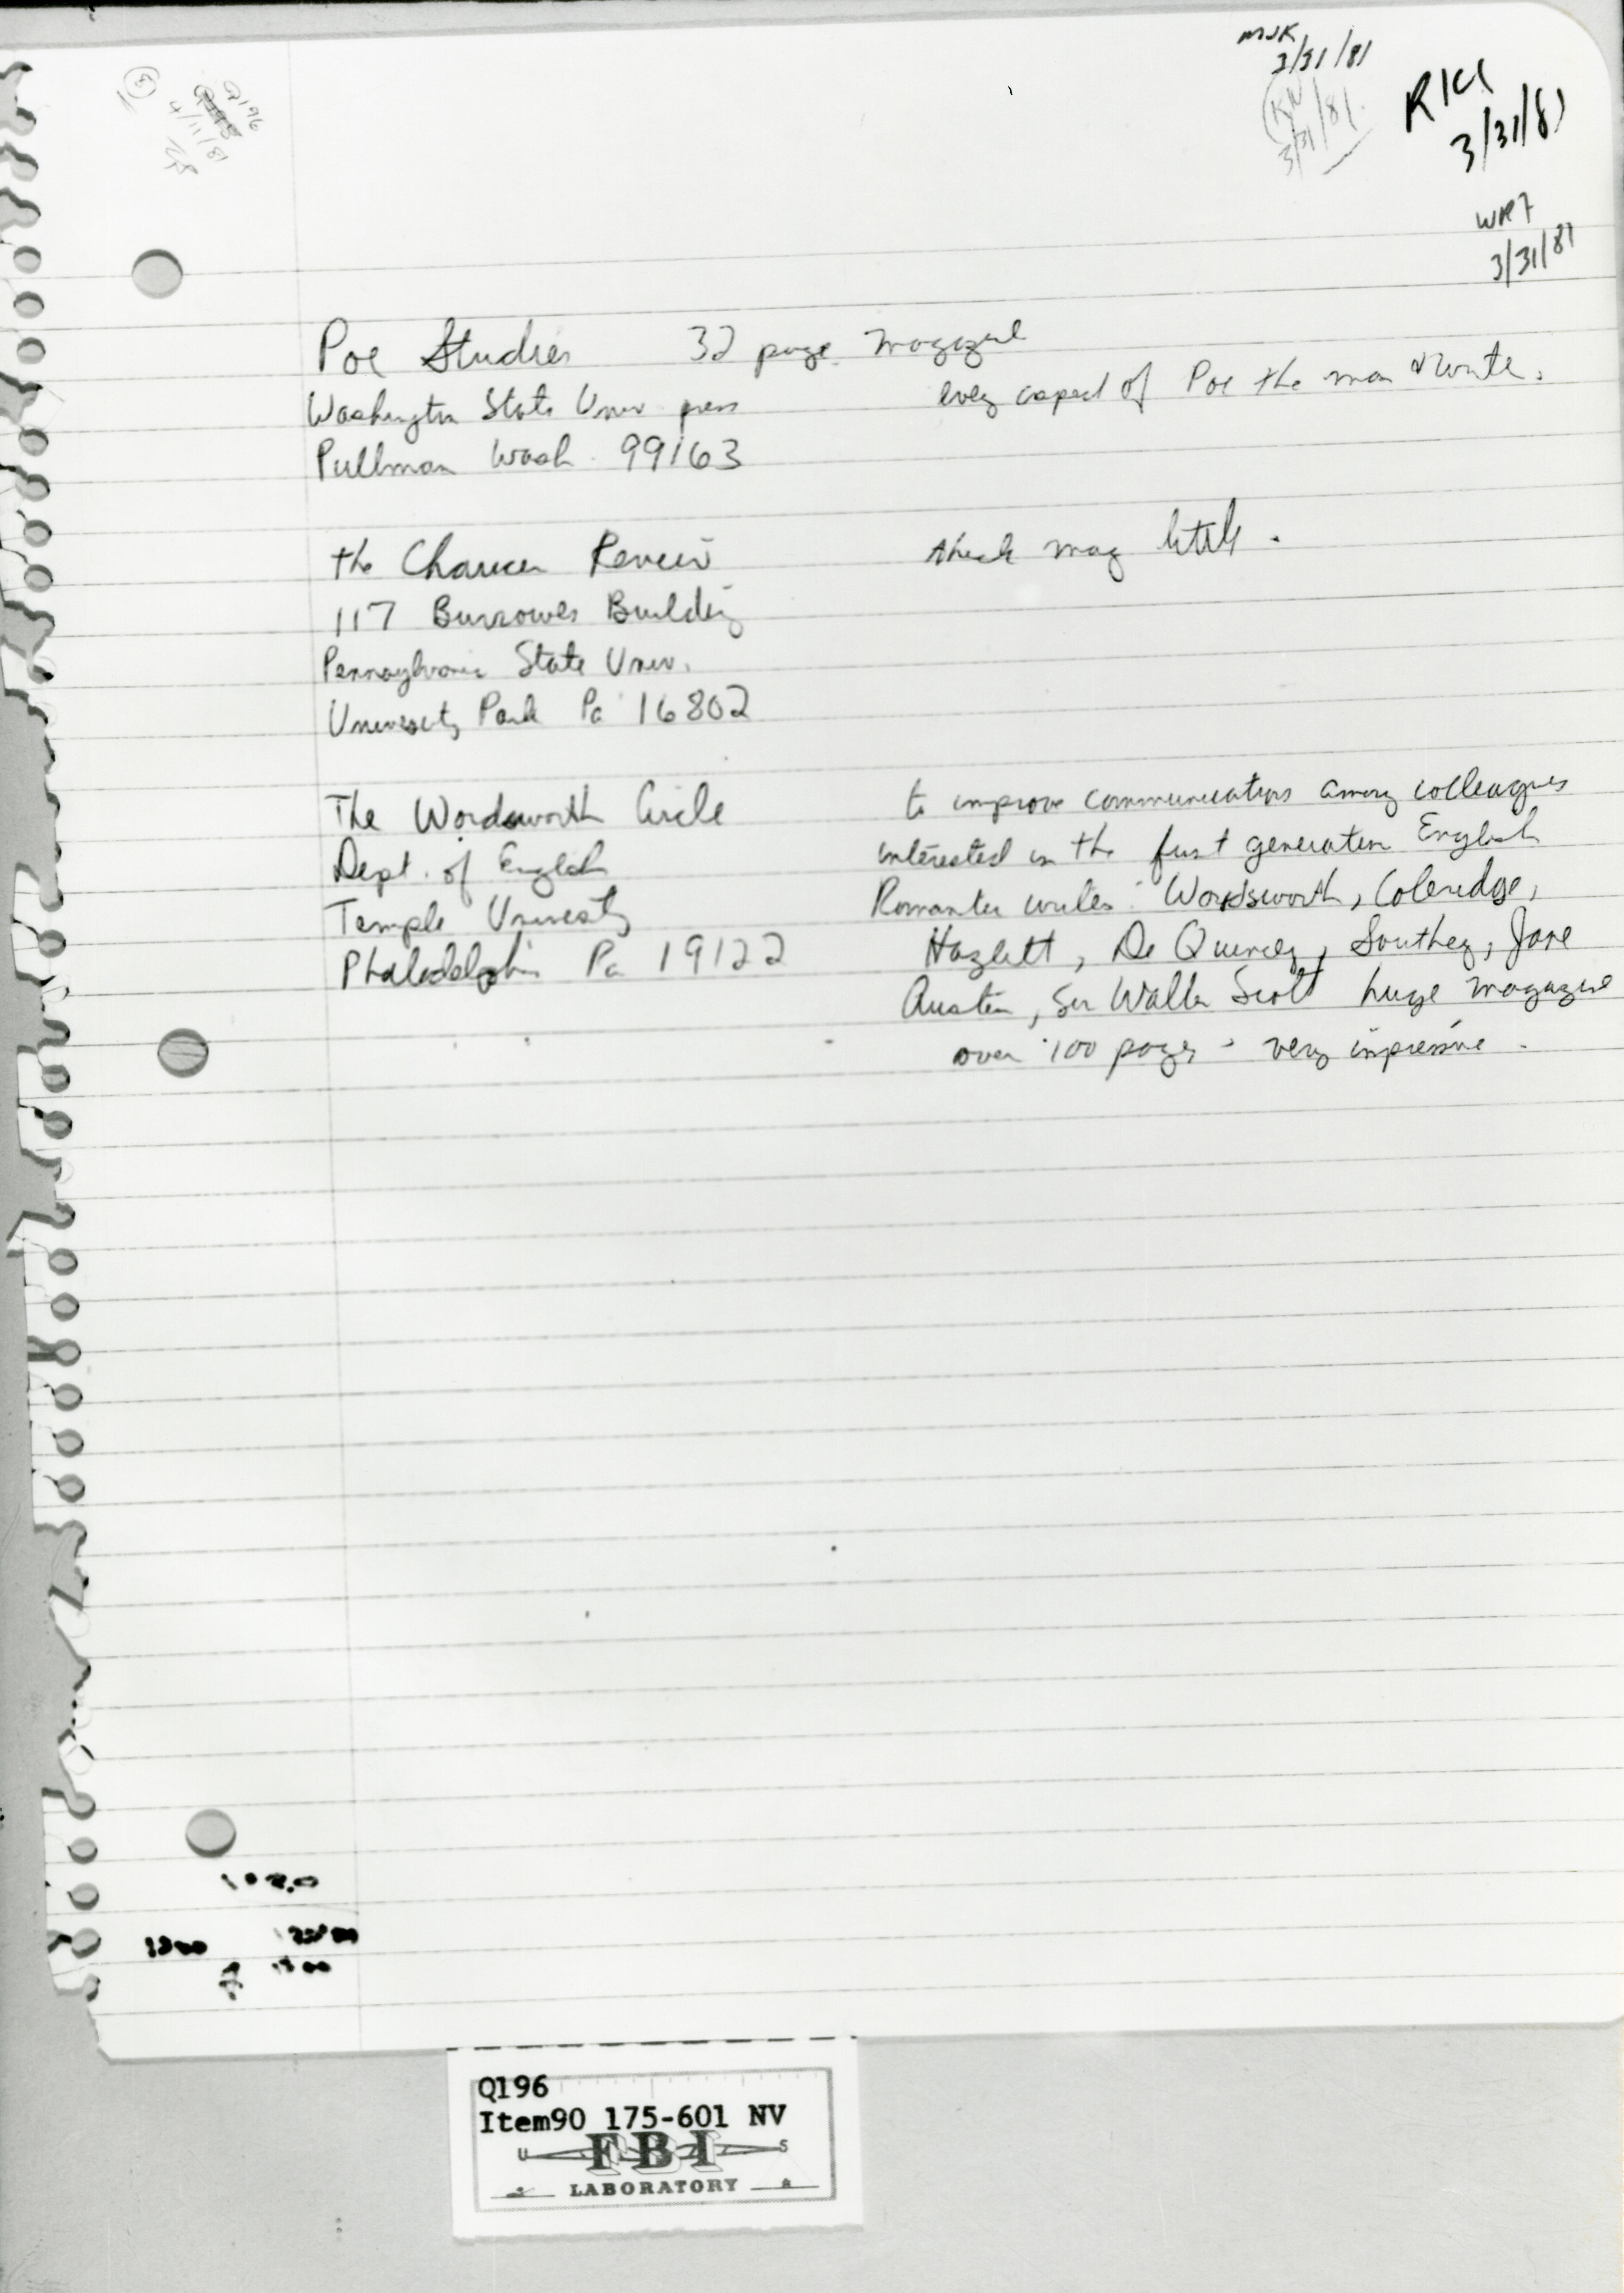 Q196
4/11/81
MJK
3/31/81
KN
3/31/81.
RKI
3/31/81
WRT
3/31/81
Poe Studies 32 page magazine
Washington State Univ press every aspect of Poe the man & write.
Pullman Wash. 99163
the Chaucer Review thick mag
117 Burrowes Building
Pennsylvania State Univ.
University Park Pa 16802
The Wordsworth Circle to improve communications among colleagues
Dept. of English interested in the first generation English
Temple University Romantic writers: Wordsworth, Coleridge,
Phaledelphi Pa 19122 Hazlett, De Quincey, Southey, Jane
Austen, Sir Walter Scott huge magazine
over 100 pages - very impressive.
Q196
Item90 175-601 NV
U S
FBI
LABORATORY